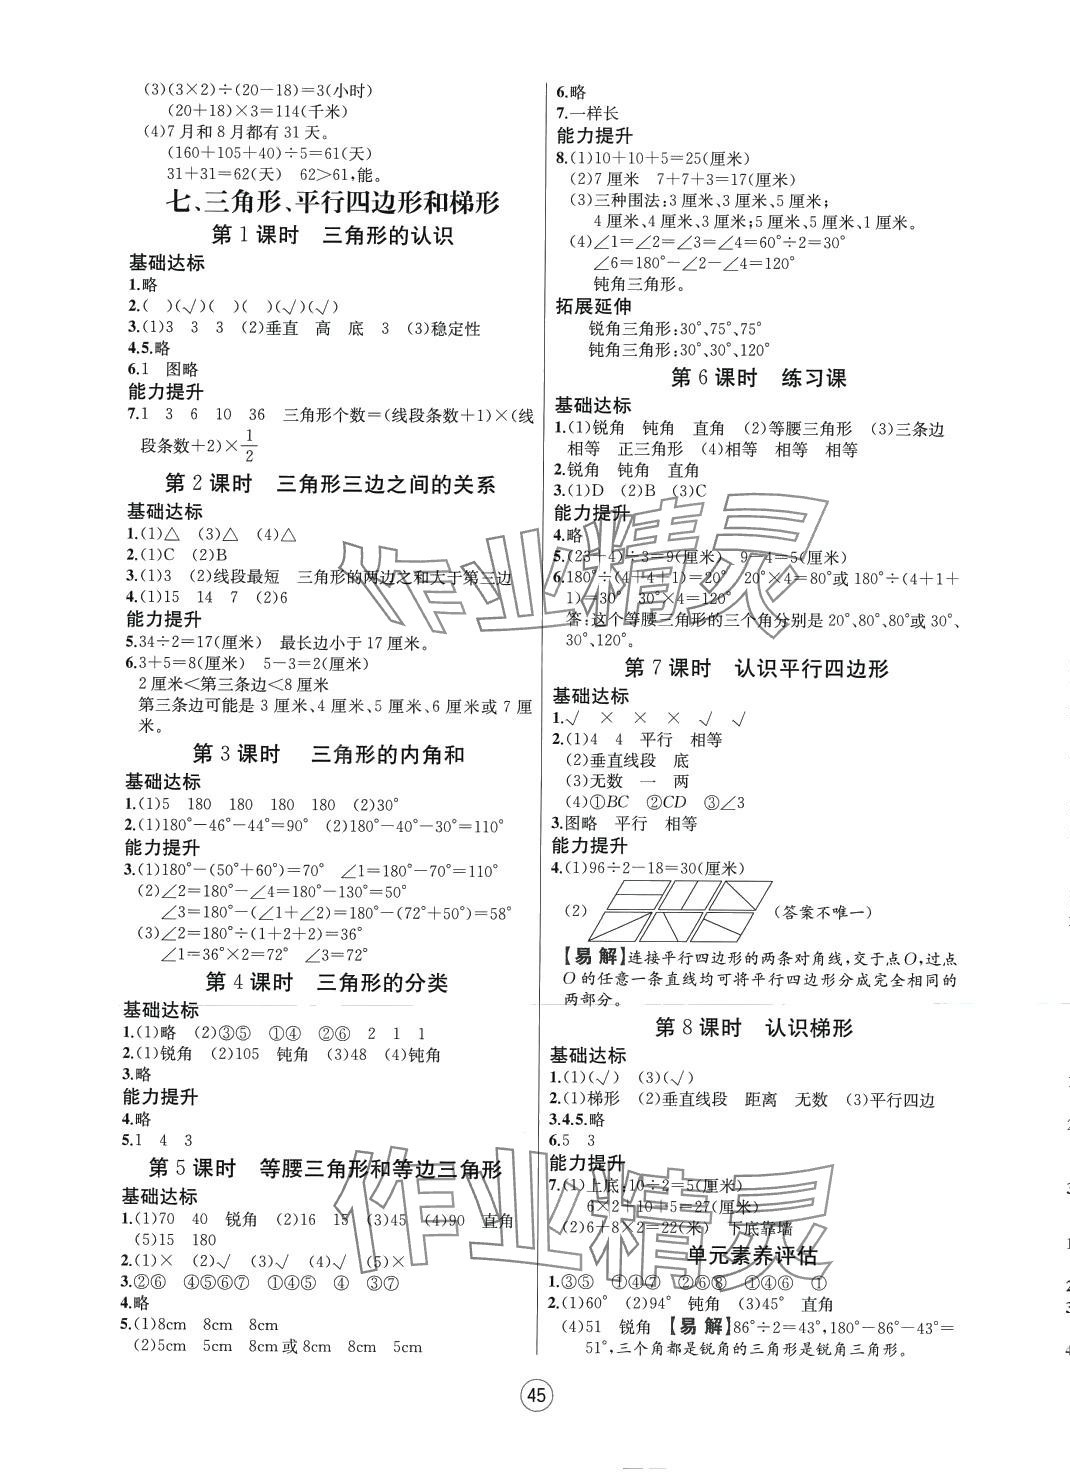 (3)(3×2)÷(20－18)=3(小时)
(20+18)×3=114(千米)
(4)7 月和 8 月都有 31 天。
(160+105+40)÷5=61(天)
31+31=62(天) 62>61,能。
七、三角形、平行四边形和梯形
第 1 课时 三角形的认识
基础达标
1.略
2.( )(√)( )( )(√)(√)
3.(1)3 3 3 (2)垂直 高 底 3 (3)稳定性
4.5.略
6.1 图略
能力提升
7.1 3 6 10 36 三角形个数=(线段条数+1)×(线
段条数+2)×1/2
第 2 课时 三角形三边之间的关系
基础达标
1.(1)△ (3)△ (4)△
2.(1)C (2)B
3.(1)3 (2)线段最短 三角形的两边之和大于第三边
4.(1)15 14 7 (2)6
能力提升
5.34÷2=17(厘米) 最长边小于 17 厘米。
6.3+5=8(厘米) 5－3=2(厘米)
2 厘米<第三条边<8 厘米
第三条边可能是 3 厘米、4 厘米、5 厘米、6 厘米或 7 厘
米。
第 3 课时 三角形的内角和
基础达标
1.(1)5 180 180 180 180 (2)30°
2.(1)180°－46°－44°=90° (2)180°－40°－30°=110°
能力提升
3.(1)180°－(50°+60°)=70° ∠1=180°－70°=110°
(2)∠2=180°－∠4=180°－130°=50°
∠3=180°－(∠1+∠2)=180°－(72°+50°)=58°
(3)∠2=180°÷(1+2+2)=36°
∠1=36°×2=72° ∠3=72°
第 4 课时 三角形的分类
基础达标
1.(1)略 (2)③⑤ ①④ ②⑥ 2 1 1
2.(1)锐角 (2)105 钝角 (3)48 (4)钝角
3.略
能力提升
4.略
5.1 4 3
第 5 课时 等腰三角形和等边三角形
基础达标
1.(1)70 40 锐角 (2)16 15 (3)45 (4)90 直角
(5)15 180
2.(1)× (2)√ (3)√ (4)√ (5)×
3.②⑥ ④⑤⑥⑦ ①④⑤ ④ ③⑦
4.略
5.(1)8cm 8cm 8cm
(2)5cm 5cm 8cm 或 8cm 8cm 5cm
6.略
7.一样长
能力提升
8.(1)10+10+5=25(厘米)
(2)7 厘米 7+7+3=17(厘米)
(3)三种围法:3 厘米、3 厘米、5 厘米;
4 厘米、4 厘米、3 厘米;5 厘米、5 厘米、1 厘米。
(4)∠1=∠2=∠3=∠4=60°÷2=30°
∠6=180°－∠2－∠4=120°
钝角三角形。
拓展延伸
锐角三角形:30°、75°、75°
钝角三角形:30°、30°、120°
第 6 课时 练习课
基础达标
1.(1)锐角 钝角 直角 (2)等腰三角形 (3)三条边
相等 正三角形 (4)相等 相等 相等
2.锐角 钝角 直角
3.(1)D (2)B (3)C
能力提升
4.略
5.(23+4)÷3=9(厘米) 9－4=5(厘米)
6.180°÷(4+4+1)=20° 20°×4=80°或 180°÷(4+1+
1)=30° 30°×4=120°
答:这个等腰三角形的三个角分别是 20°、80°、80°或 30°、
30°、120°。
第 7 课时 认识平行四边形
基础达标
1.√ × × × √ √
2.(1)4 4 平行 相等
(2)垂直线段 底
(3)无数 一 两
(4)①BC ②CD ③∠3
3.图略 平行 相等
能力提升
4.(1)96÷2－18=30(厘米)
(2) (答案不唯一)
【易 解】连接平行四边形的两条对角线,交于点O,过点
O 的任意一条直线均可将平行四边形分成完全相同的
两部分。
第 8 课时 认识梯形
基础达标
1.(1)(√) (3)(√)
2.(1)梯形 (2)垂直线段 距离 无数 (3)平行四边
3.4.5.略
6.5 3
能力提升
7.(1)上底:10÷2=5(厘米)
6×2+10+5=27(厘米)
(2)6+8×2=22(米) 下底靠墙
单元素养评估
1.③⑤ ①④⑦ ②⑥⑧ ①④⑥ ①
2.(1)60° (2)94° 钝角 (3)45° 直角
(4)51 锐角 【易 解】86°÷2=43°,180°－86°－43°=
51°,三个角都是锐角的三角形是锐角三角形。
45
作业精灵
作业精灵